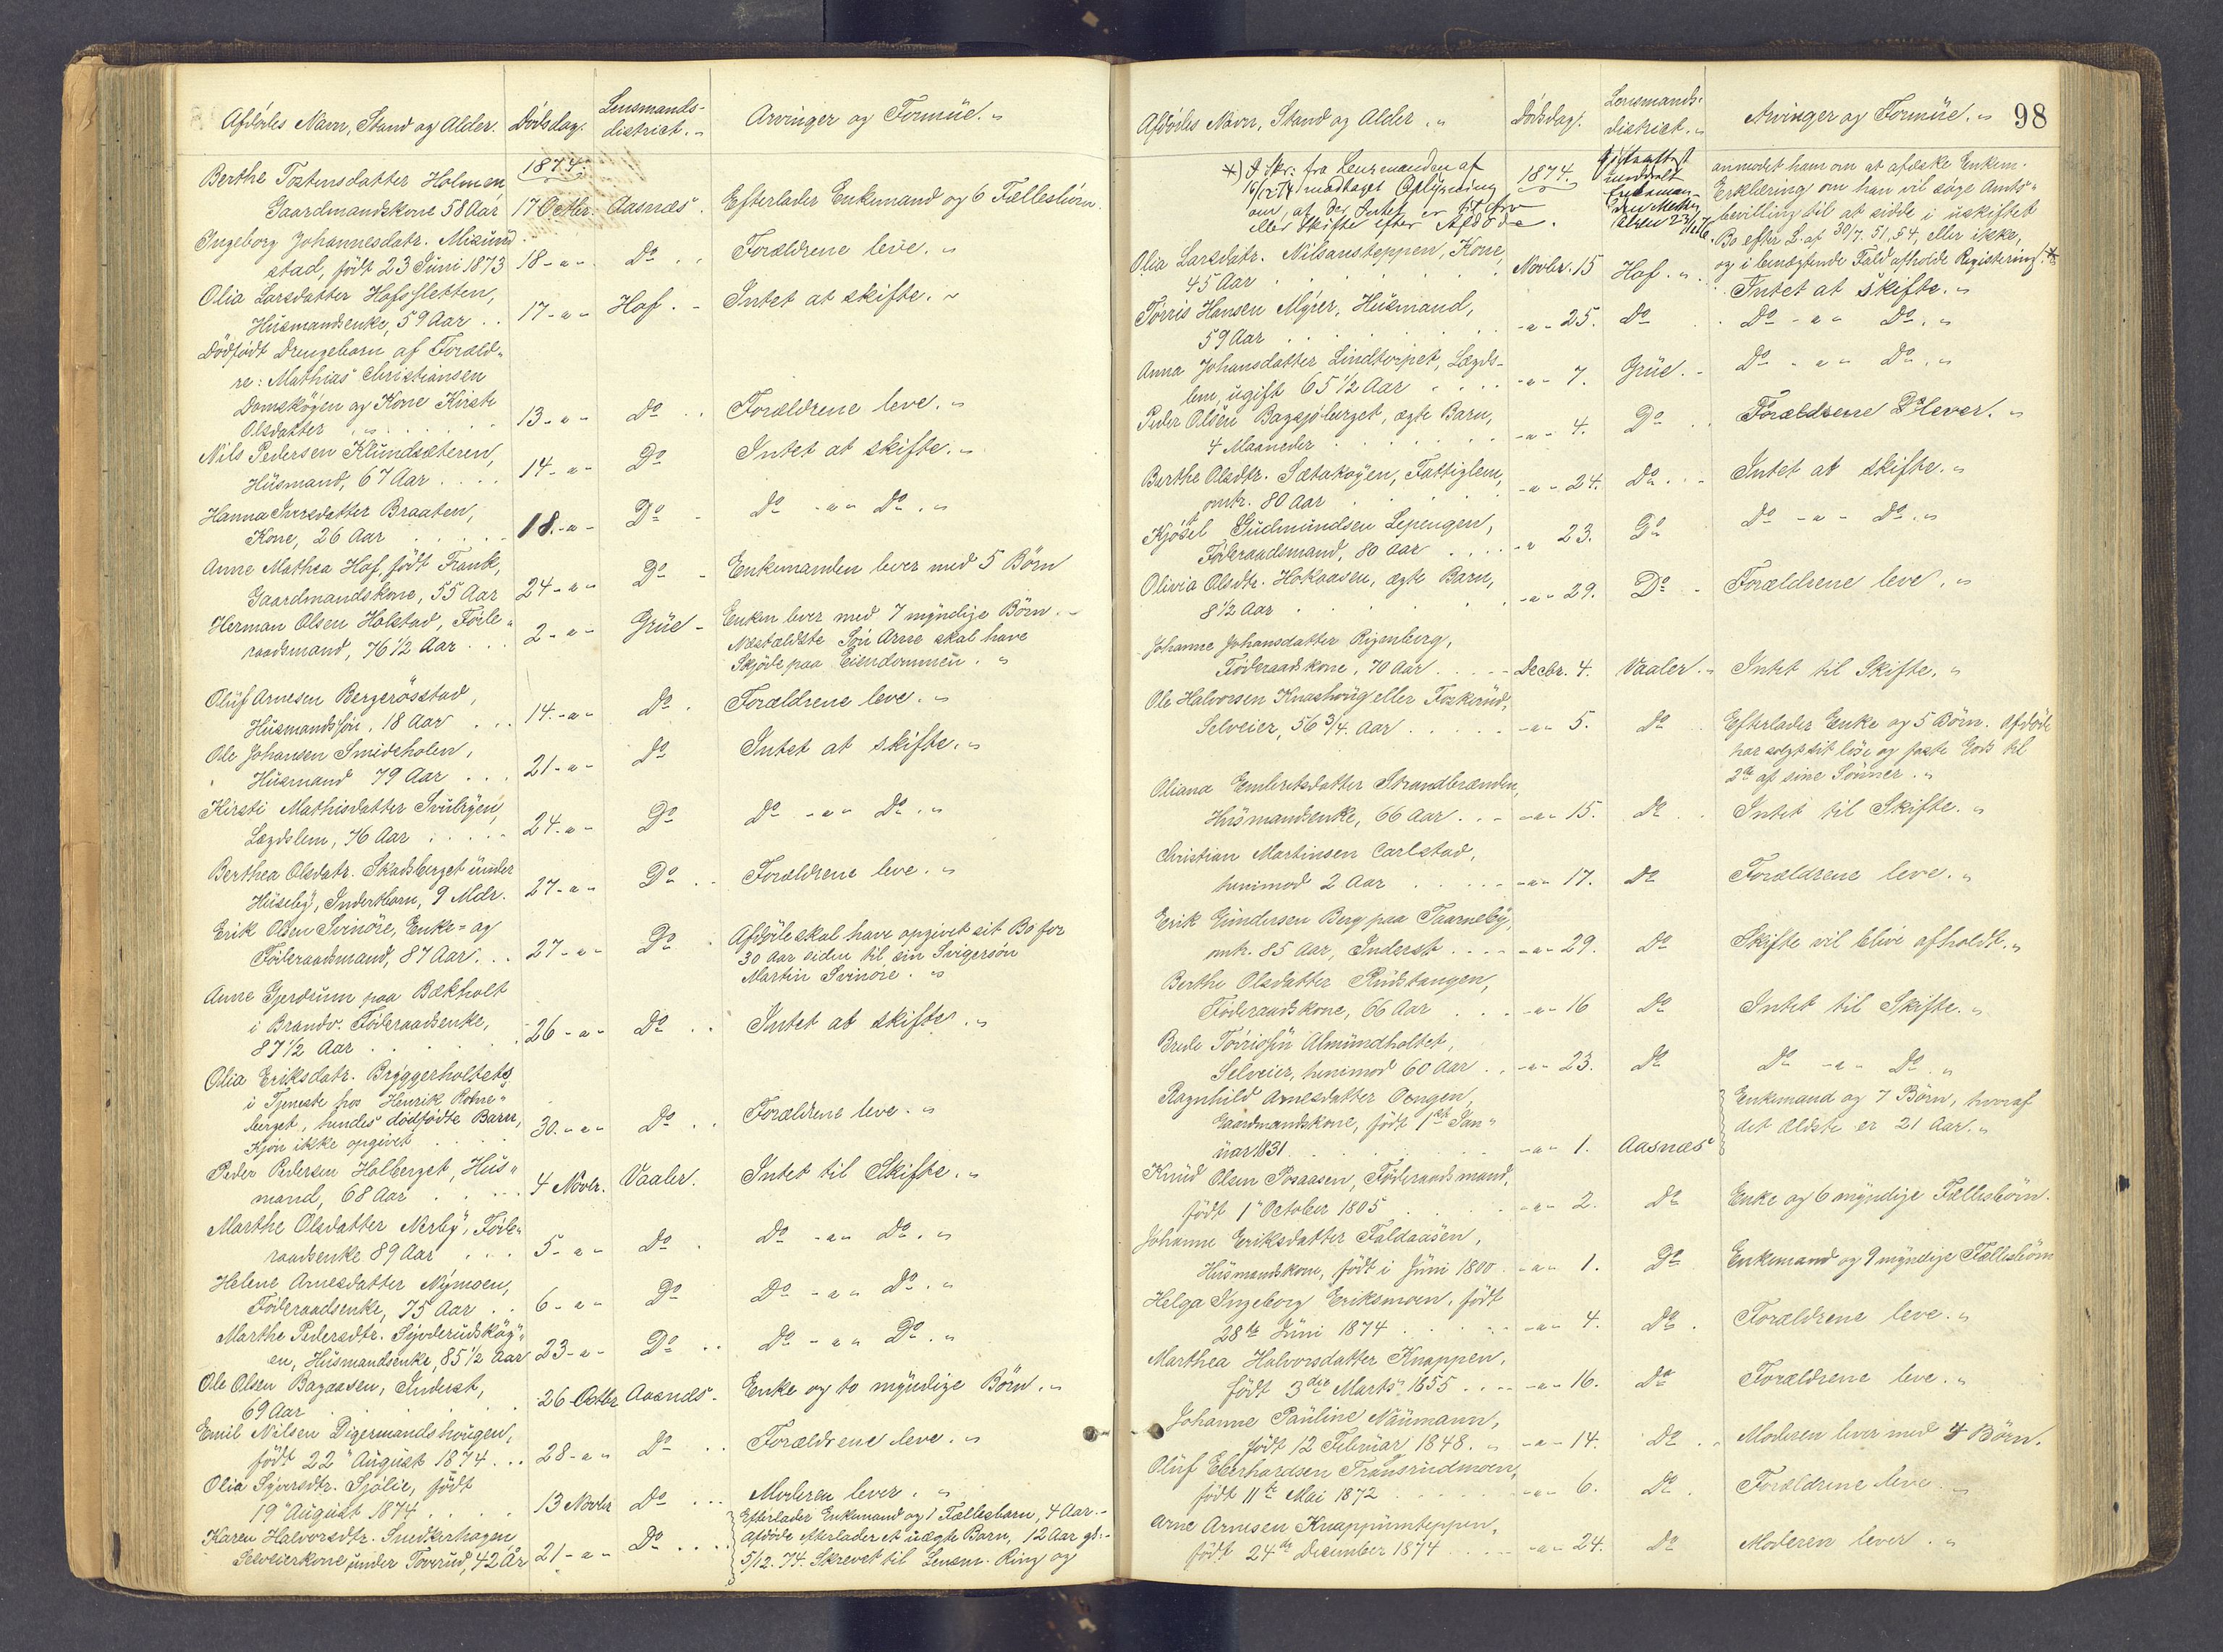 Afdødes Navn, Stand og Alder.
Dødsdag.
Lensmands-
district. "
Arvinger og Formüe. "
1874.
Berthe Tostensdatter Holmen,
Gaardmandskone 58 Aar
17 Octbr.
Aasnæs.
Efterlader Enkemand og 6 Fællesbörn.
Ingeborg Johannesdatr. Misund-
stad, født 23 Juni 1873
18 - " -
Do
Forældrene leve. "
Olia Larsdatter Hofsletten,
Husmandsenke, 59 Aar . .
17 - " -
Hof. -
Intet at skifte. "
Dödfødt Drengebarn af Foræld-
re: Mathias Christiansen
Domskögen og Kone Kirsti
Olsdatter
13 - " -
Do
Forældrene leve. "
Nils Pedersen Klundsæteren,
Husmand, 67 Aar . . . .
14 - " -
Do
Intet at skifte. "
Hanna Iversdatter Braaten,
Kone, 26 Aar . . . . .
18. - " -
Do
Do - " - Do. "
Anne Mathea Hof, född Frank,
Gaardmandskone, 55 Aar
24 - " -
Do -
Enkemanden lever med 5 Börn
Herman Olsen Holstad, Föde-
raadsmand, 76 1/2 Aar . . .
2 - " -
Grüe -
Enken lever med 7 myndige Börn. -
Næstældste Sön Arne skal have
Skjöde paa Eiendommen. "
Oluf Arnesen Bergerösstad,
Husmandssön, 18 Aar . . .
14. - " -
Do.
Forældrene leve. "
Ole Johansen Smidsholen,
Husmand 79 Aar . . .
21 - " -
Do
Intet at skifte. "
Kirsti Mathisdatter
Lægdslem, 76 Aar . . . . .
24. " -
Do
Do - " - Do. "
Berthea Olsdatr. Skadsberget under
Huseby, Inderstbarn, 9 Mdr.
27 - " -
Do . .
Forældrene leve. "
Erik Olsen Svinöre, Enke- og
Föderaadsmand, 87 Aar. . .
27 - " -
Do
Afdöde skal have opgivet sit Bo for
30 Aar siden til sin Svigersön
Martin Svinöre. "
Anne Gjerdrum paa Bækholt
i Brandv. Föderaadsenke,
87 1/2 Aar . . . .
26 - " -
Do . .
Intet at skifte. "
Olia Eriksdatr. Bryggerholtets,
i Tjeneste hos Henrik Rotne-
berget, hendes dödfødte Barn,
Kjön ikke opgivet . . . .
30. - " -
Do . .
Forældrene leve. "
Peder Pedersen Holberget, Hus-
mand, 68 Aar . . . .
4 Novbr.
Vaaler.
Intet til Skifte. "
Marthe Olsdatter Nerby, Föde-
raadsenke 89 Aar . . .
5 - " -
Do .
Do - " - Do. "
Helene Arnesdatter Nymoen,
Föderaadsenke, 75 Aar . .
6 - " -
Do
Do - " - Do. "
Marthe Pedersdtr. Syverudskög-
en, Husmandsenke, 85 1/2 Aar
23 - " -
Do . .
Do - " - Do. "
Ole Olsen Bagaasen, Inderst,
69 Aar
26 Octbr
Aasnæs -
Enke og to myndige Börn. "
Emil Nilsen Digermandshougen,
født 22 " August 1874 . . .
28 - " -
Do . .
Forældrene leve. "
Olia Syversdtr. Sjölie, født
19 " August 1874 . . . .
13 Novbr
Do . . .
Moderen lever. "
Karen Halvorsdtr. Snedkerhagen,
Selveierkone under Toverud, 42 År
21 - " -
Do . . . .
Efterlader Enkemand og 1 Fællesbarn, 4 Aar. -
Afdöde efterlader et uægte Barn, 12 Aar gl: -
5/12. 74. Skrevet til Lensm. Ring og
98
Afdødes Navn, Stand og Alder. "
Dödsdag.
Lensmands-
district. "
Arvinger og Formüe. "
*) I Skr. fra Lensmanden af
16/12 74 modtaget Oplysning
om, at der Intet er til Arv
eller Skifte efter Afdöde.
1874.
anmodet ham om at afæske Enkem.
Erklæring om han vil söge Amts-
bevilling til at sidde i uskiftet
Bo efter L. af 30/7. 51, § 4, eller ikke,
og i benægtende Fald afholde Registering. *
Olia Larsdatr. Nilsansteppen, Kone,
45 Aar . . . . .
Novbr. 15
Hof. "
Intet at skifte. "
Torris Hansen Myrer, Husmand,
59 Aar . . . . . .
- " - 25.
Do
Do - " - Do. "
Anna Johansdatter Lindtorpet, Lægds-
lem, ugift 65 1/2 Aar . . . .
- " - 7.
Grüe. -
Do - " - Do. "
Peder Olsen Bagsjöberget, ægte Barn,
4 Maaneder . . . . . .
- " - 4.
Do
Forældrene lever. "
Berthe Olsdtr. Sætskogen, Fattiglem,
omtr. 80 Aar
- " - 24.
Do . .
Intet at skifte. "
Kjöstel Gudmundsen Lepengen,
Föderaadsmand, 80 Aar . . . .
- " 23.
Do
Do - " - Do. "
Olivia Olsdtr. Hokaasen, ægte Barn,
8 1/2 Aar . . . . . .
- " - 29.
Do -
Forældrene leve. "
Johanne Johansdatter Rigenberg,
Föderaadskone, 70 Aar . . . .
Decbr. 4.
Vaaler. "
Intet til Skifte. "
Ole Halvorsen Knashoug eller Foskerud,
Selveier, 56 3/4. Aar . . . . .
- " - 5.
Do
Efterlader Enke og 5 Börn. Afdöde
har solgt sit löse og faste Gods til
2de af sine Sönner. "
Oliana Embretsdatter Strandbrænden,
Husmandsenke, 66 Aar. . .
- " - 15.
Do
Intet til Skifte. "
Christian Martinsen Carlstad,
henimod 2 Aar . . . .
- " - 17.
Do
Forældrene leve. "
Erik Gundersen Berg paa Taarneby,
omtr. 85 Aar, Inderst . . . .
- " - 29.
Do
Skifte vil blive afholdt. "
Berthe Olsdatter Rudstangen,
Föderaadskone, 66 Aar . . .
- " - 16
Do
Intet til Skifte. "
Brede Almundholtet,
Selveier, henimod 60 Aar . .
- " - 23.
Do
Do - " - Do. "
Ragnhild Arnesdatter Oongen,
Gaardmandskone, född 1ste Jan-
uar 1831 . . . .
- " - 1.
Aasnæs
Enkemand og 7 Börn, hvoraf
det ældste er 21 Aar. "
Knud Olsen Posaasen, Föderaadsmand,
født 1 " October 1805 . . . .
- " - 2.
Do
Enke og 6 myndige Fællesbörn.
Johanne Eriksdatter Faldaasen,
Husmandskone, født i Juni 1800
- " - 1.
Do
Enkemand og 9 myndige Fællesbörn
Helga Ingeborg Eriksmoen, født
28de Juni 1874 . . . .
- " - 4.
Do .
Forældrene leve. "
Marthea Halvorsdatter Knappen,
født 3die Marts 1855 . . . .
- " - 16.
Do
Forældrene leve. "
Johanne Pauline Naumann,
født 12 Februar 1848. "
- " - 14.
Do "
Moderen lever med 4 Börn.
Oluf Eberhardsen Transrudmoen,
født 11te Mai 1872 . . . .
- " - 6.
Do .
Forældrene leve. "
Arne Arnesen Knappumteppen,
født 24de December 1874 . . . .
- " - 24.
Do
Moderen lever. "